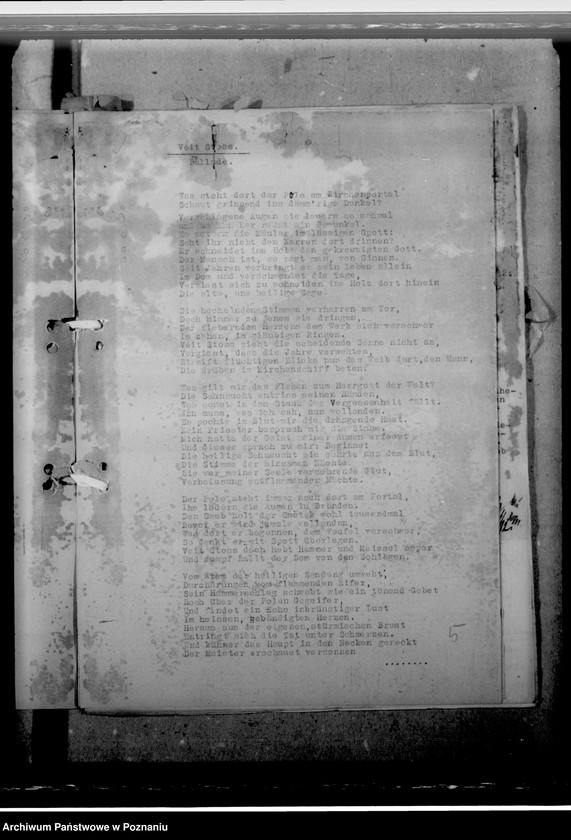 Veit Stoss.
Ballade.
Was steht dort der Pole am Kirchenportal
Schaut grinsend ins dämm'rige Dunkel?
Augen sie lauern so schmal
und
die Mäuler im lässigen Spott:
Seht ihr nicht den Narren dort drinnen?
Er schneidet im Holz den gekreuzigten Gott.
Der Mensch ist, so sagt man, von Sinnen.
Seit Jahren verbringt er sein Leben allein
Im Dom und verschwendet die Tage,
Vergisst sich zu schneiden ins Holz dort hinein
Die alte, uns heilige Sage.
Die höhnenden Stimmen verharren am Tor,
Doch Himmer zu jenem sie dringen,
Der fiebernden Herzens dem Werk sich verschwor
Im zähen, gläubigen Ringen.
Veit Stoss sieht die scheidende Sonne nicht an,
Vergisst, dass die Jahre verwehten,
Streift flüchtigen Blicks nun das Weib dort, den Mann,
Die drüben im Kirchenschiff beten.
Was gilt mir das Flehen zum Herrgott der Welt?
Die Sehnsucht entriss meinen Händen,
Was sonst in den Staub der Vergessenheit fällt.
Ich muss, was ich sah, nun vollenden.
Es pochte im Blut mir die drängende Hast.
Kein Priester besprach mir die Sinne,
Mich hatte der Geist meiner Ahnen erfasst
Und dieser sprach zu mir: Beginne!
Die heilige Sehnsucht sie gehrte aus dem Blut,
Die Stimme der einsamen Nächte.
Sie war meiner Seele verzehrende Glut,
Verheissung entflammender Mächte.
Der Pole steht immer noch dort am Portal,
Ihm lodern die Augen in Bränden.
Den Gaab holt der Satan wohl tausendmal
Bevor er wird jemals vollenden,
Was dort er begonnen, dem Teufel verschwor,
So denkt er mit Spott überlegen.
Veit Stoss doch hebt Hammer und Meissel empor
Und dumpf hallt der Dom von den Schlägen.
Vom Atem der heiligen Sendung umweht,
Durchdrungen vom flammenden Eifer,
Sein Hammerschlag schwebt wie ein tönend Gebet
Hoch über der Polen Gegeifer,
Und findet ein Echo inbrünstiger Lust
Im heissen, gebändigten Herzen.
Heraus nun der eigenen, stürmischen Brust
Entringt sich die Tat unter Schmerzen.
Und kühner das Haupt in den Nacken gereckt
Der Meister erschaut versonnen
........
5
Archiwum Państwowe w Poznaniu